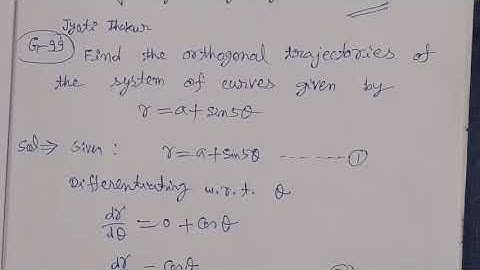 Jyoti Thakur
G-99 Find the orthogonal trajectories of
the system of curves given by
r = a + sin5θ
Sol⇒ Given : r = a + sin5θ ------- ①
Differentiating w.r.t. θ
dr/dθ = 0 + cosθ
dr = cosθ